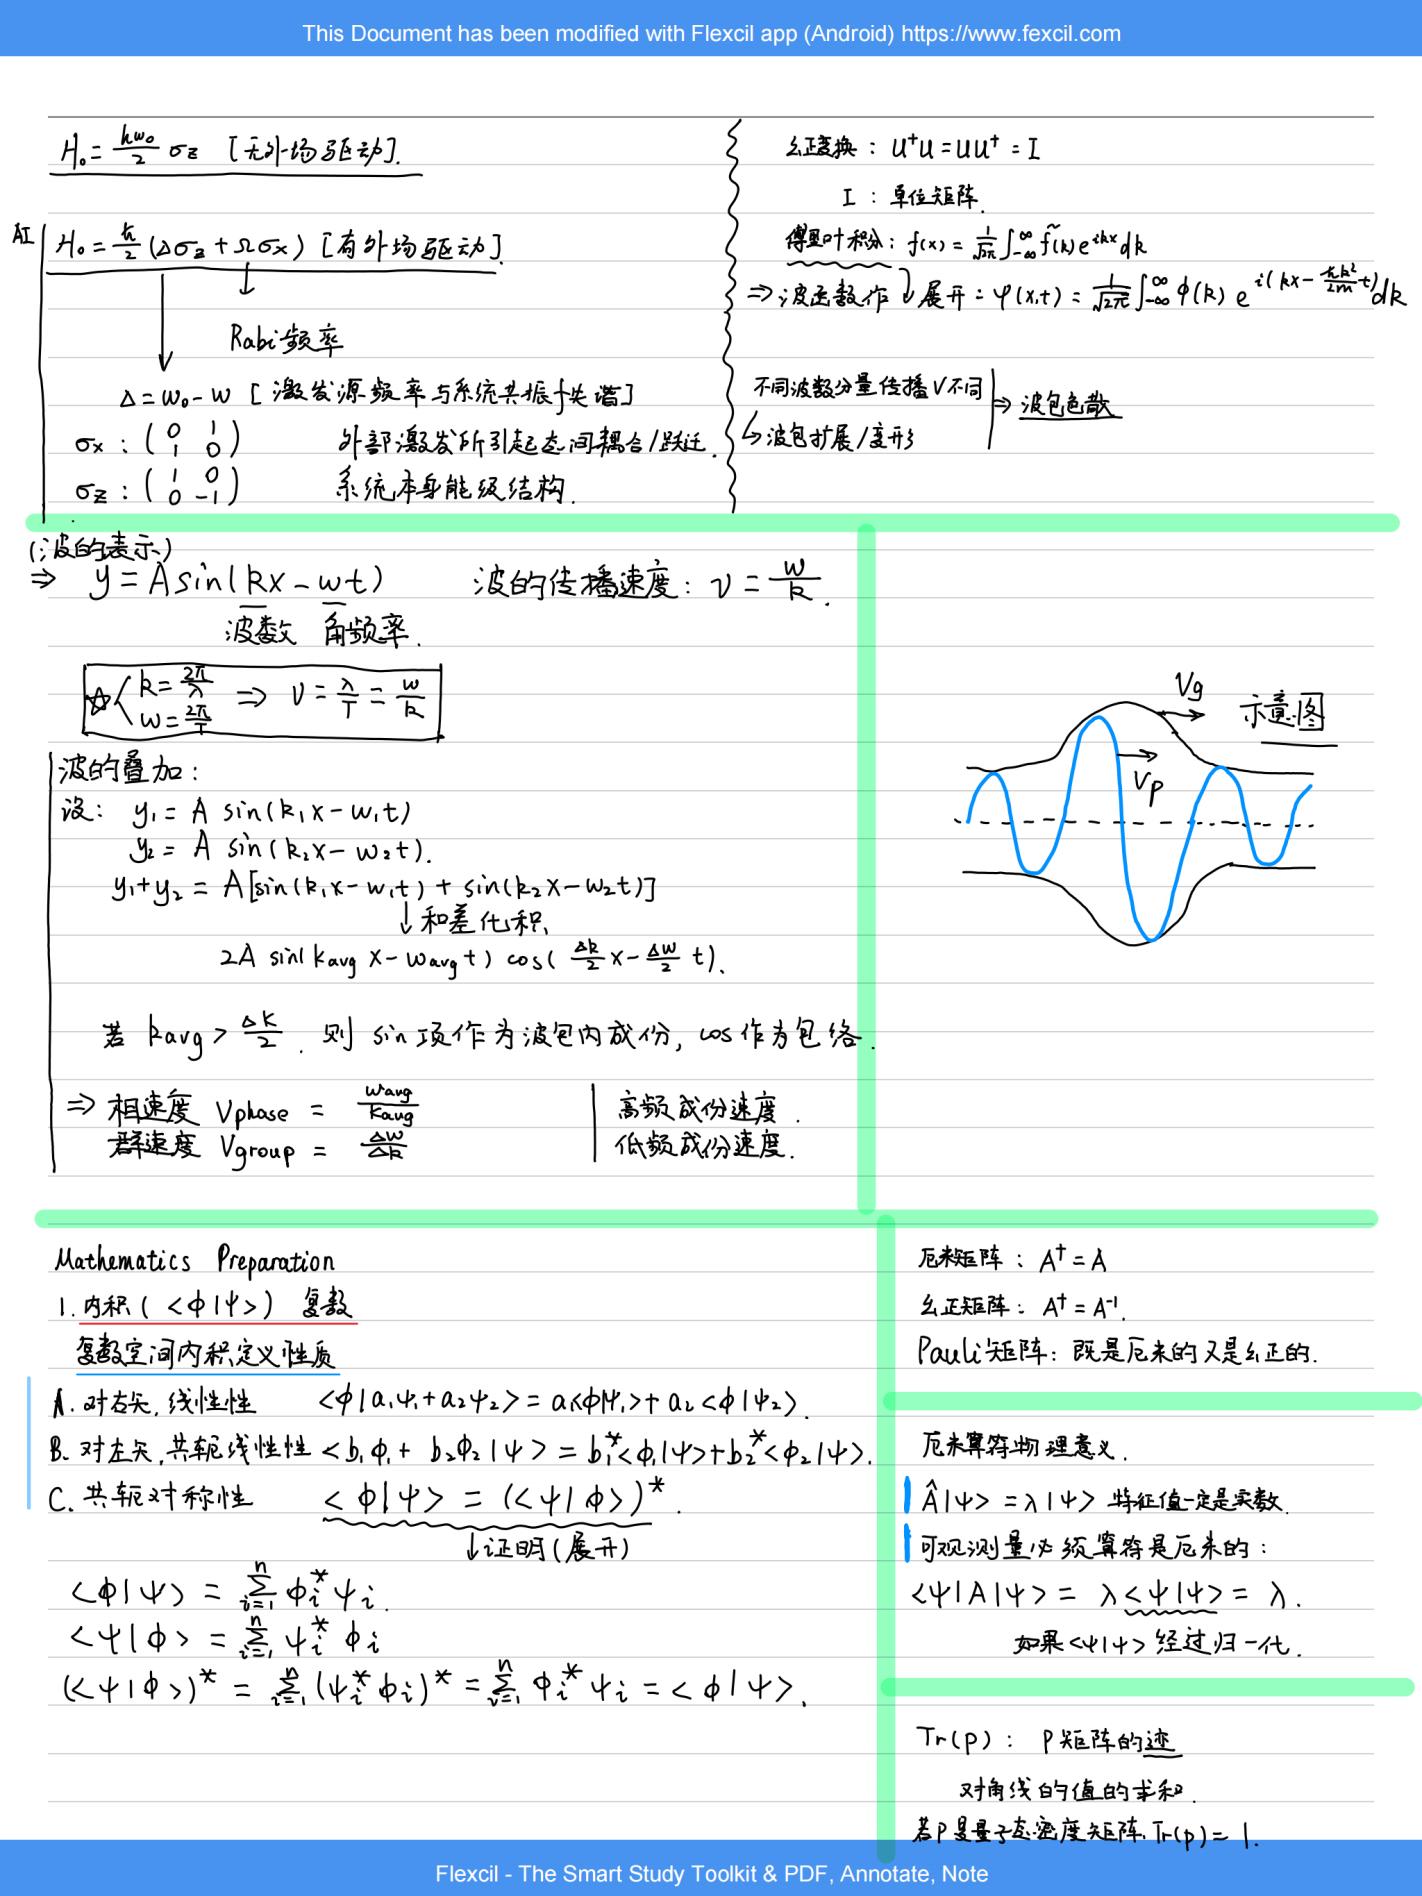 This Document has been modified with Flexcil app (Android) https://www.fexcil.com
H₀ = ħω₀/2 σz [无外场驱动].
AI
H₀ = ħ/2 (Δσz + Ωσx) [有外场驱动].
Rabi频率
Δ = ω₀ - ω [激发源频率与系统共振f失谐]
σx : (0 1 / 1 0) 外部激发所引起态间耦合/跃迁.
σz : (1 0 / 0 -1) 系统本身能级结构.
幺正变换 : U†U = UU† = I
I : 单位矩阵.
傅里叶积分 : f(x) = 1/√2π ∫_{-∞}^{∞} f̃(k) e^{ikx} dk
⇒ 波函数作 ↓ 展开 : φ(x,t) = 1/√2π ∫_{-∞}^{∞} ϕ(k) e^{i(kx - ħk²/2m t)} dk
不同波数分量传播V不同
↳ 波包扩展/变形
⇒ 波包色散
(波的表示)
⇒ y = A sin(kx - ωt) 波的传播速度 : v = ω/k.
波数 角频率.
☆ { k = 2π/λ ω = 2π/T ⇒ V = λ/T = ω/k
波的叠加 :
设 : y₁ = A sin(k₁x - ω₁t)
y₂ = A sin(k₂x - ω₂t).
y₁+y₂ = A[sin(k₁x - ω₁t) + sin(k₂x - ω₂t)]
↓ 和差化积
2A sin(kavg x - ωavg t) cos( Δk/2 x - Δω/2 t).
若 kavg > Δk/2 . 则 sin 项作为波包内成份, cos作为包络.
⇒ 相速度 Vphase = ωavg/kavg 高频成份速度.
群速度 Vgroup = Δω/Δk 低频成份速度.
Vg
示意图
Vp
Mathematics Preparation
1. 内积 ( <ϕ|ψ> ) 复数
复数空间内积定义性质
A. 对右矢, 线性性 <ϕ|a₁ψ₁+a₂ψ₂> = a₁<ϕ|ψ₁>+a₂<ϕ|ψ₂>.
B. 对左矢, 共轭线性性 <b₁ϕ₁+ b₂ϕ₂|ψ> = b₁*<ϕ₁|ψ>+b₂*<ϕ₂|ψ>.
C. 共轭对称性 <ϕ|ψ> = (<ψ|ϕ>)*.
↓ 证明(展开)
<ϕ|ψ> = Σ_{i=1}^{n} ϕᵢ* ψᵢ.
<ψ|ϕ> = Σ_{i=1}^{n} ψᵢ* ϕᵢ
(<ψ|ϕ>)* = Σ_{i=1}^{n} (ψᵢ*ϕᵢ)* = Σ_{i=1}^{n} ϕᵢ* ψᵢ = <ϕ|ψ>.
厄米矩阵 : A† = A
幺正矩阵 : A† = A⁻¹.
Pauli矩阵 : 既是厄米的又是幺正的.
厄米算符物理意义.
Â|ψ> = λ|ψ> 特征值一定是实数.
可观测量必须算符是厄米的 :
<ψ|A|ψ> = λ<ψ|ψ> = λ.
如果<ψ|ψ> 经过归一化.
Tr(ρ) : ρ矩阵的迹
对角线的值的求和.
若ρ是量子态密度矩阵, Tr(ρ) = 1.
Flexcil - The Smart Study Toolkit & PDF, Annotate, Note